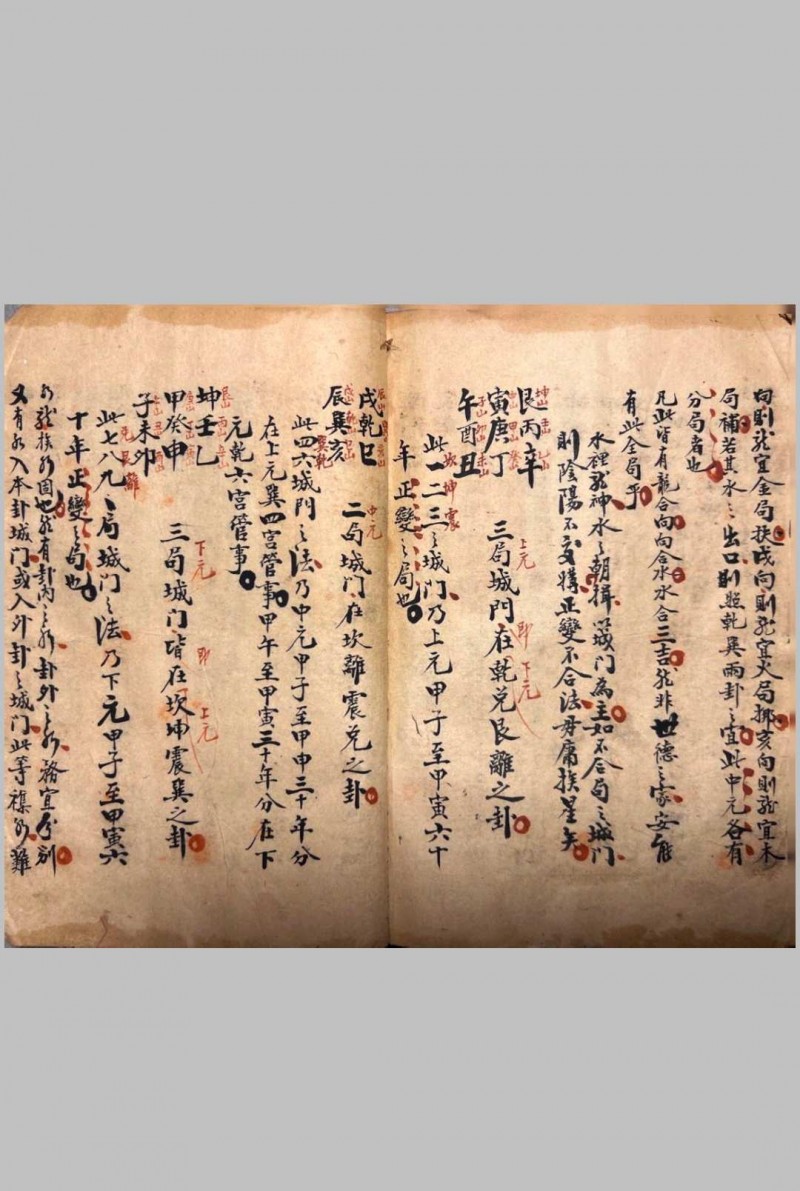 向則龍宜金局扶戌向則龍宜火局挪亥向則龍宜木
局補若其水之出口則照乾巽兩卦之宜此中元各有
分局者也
凡此皆有龍合向向合水水合三吉然非世德之家安能
有此全局乎
水裡龍神水之朝揖以城門為主如不合局之城門
則陰陽不交媾正變不合法毋庸挨星矣
艮丙辛
寅庚丁
午酉丑
上元 即下元
三局城門在乾兌艮離之卦
坎坤震
此一二三之城門乃上元甲子至甲寅六十
年正變之局也
戌乾巳
辰巽亥
中元
二局城門在坎離震兌之卦
巽乾
此四六城門之法乃中元甲子至甲申三十年分
在上元巽四宮管事甲午至甲寅三十年分在下
元乾六宮管事
坤壬乙
甲癸申
子未卯
下元 即上元
三局城門皆在坎坤震巽之卦
兌艮離
此七八九之局城門之法乃下元甲子至甲寅六
十年正變之局也
水龍挨水固也然有卦內之水卦外之水務宜分別
又有水入本卦城門或入外卦之城門此等襍水難